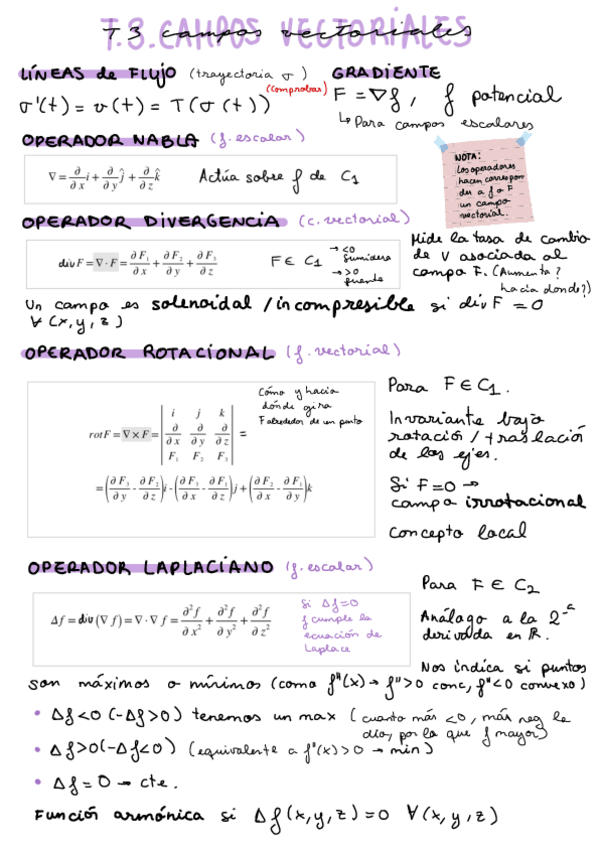 T.3. CAMPOS VECTORIALES
LÍNEAS de FLUJO (trayectoria σ)
(comprobar)
σ'(t) = v(t) = T(σ(t))
GRADIENTE
F = ∇f, f potencial
↳ Para campos escalares
OPERADOR NABLA (f. escalar)
∇ = ∂/∂x i + ∂/∂y ĵ + ∂/∂z k̂
Actúa sobre f de C1
NOTA:
Los operadores
hacen correspon
der a f o F
un campo
vectorial.
OPERADOR DIVERGENCIA (c. vectorial)
div F = ∇·F = ∂F₁/∂x + ∂F₂/∂y + ∂F₃/∂z
F ∈ C1
→ <0
Sumidero
→ >0
fuente
Mide la tasa de cambio
de V asociada al
campo F. (Aumenta?
hacia donde?)
Un campo es solenoidal / incompresible si div F = 0
∀ (x, y, z)
OPERADOR ROTACIONAL (f. vectorial)
rotF = ∇×F = | i j k | ∂/∂x ∂/∂y ∂/∂z | F₁ F₂ F₃ | =
= (∂F₃/∂y - ∂F₂/∂z)i - (∂F₃/∂x - ∂F₁/∂z)j + (∂F₂/∂x - ∂F₁/∂y)k
Cómo y hacia
dónde gira
F alrededor de un punto
Para F ∈ C1.
Invariante bajo
rotación / traslación
de los ejes.
Si F=0 →
campo irrotacional
Concepto local
OPERADOR LAPLACIANO (f. escalar)
Δf = div(∇f) = ∇·∇f = ∂²f/∂x² + ∂²f/∂y² + ∂²f/∂z²
Si Δf=0
f cumple la
ecuación de
Laplace
Para F ∈ C2
Análago a la 2ª
derivada en ℝ.
Nos indica si puntos
son máximos o mínimos (como f''(x) → f''>0 conc, f''<0 convexo)
• Δf<0 (-Δf>0) tenemos un max (cuanto más <0, más neg la
• Δf>0 (-Δf<0) (equivalente a f''(x)>0 → min)
• Δf = 0 → cte.
Función armónica si Δf(x,y,z)=0 ∀(x,y,z)